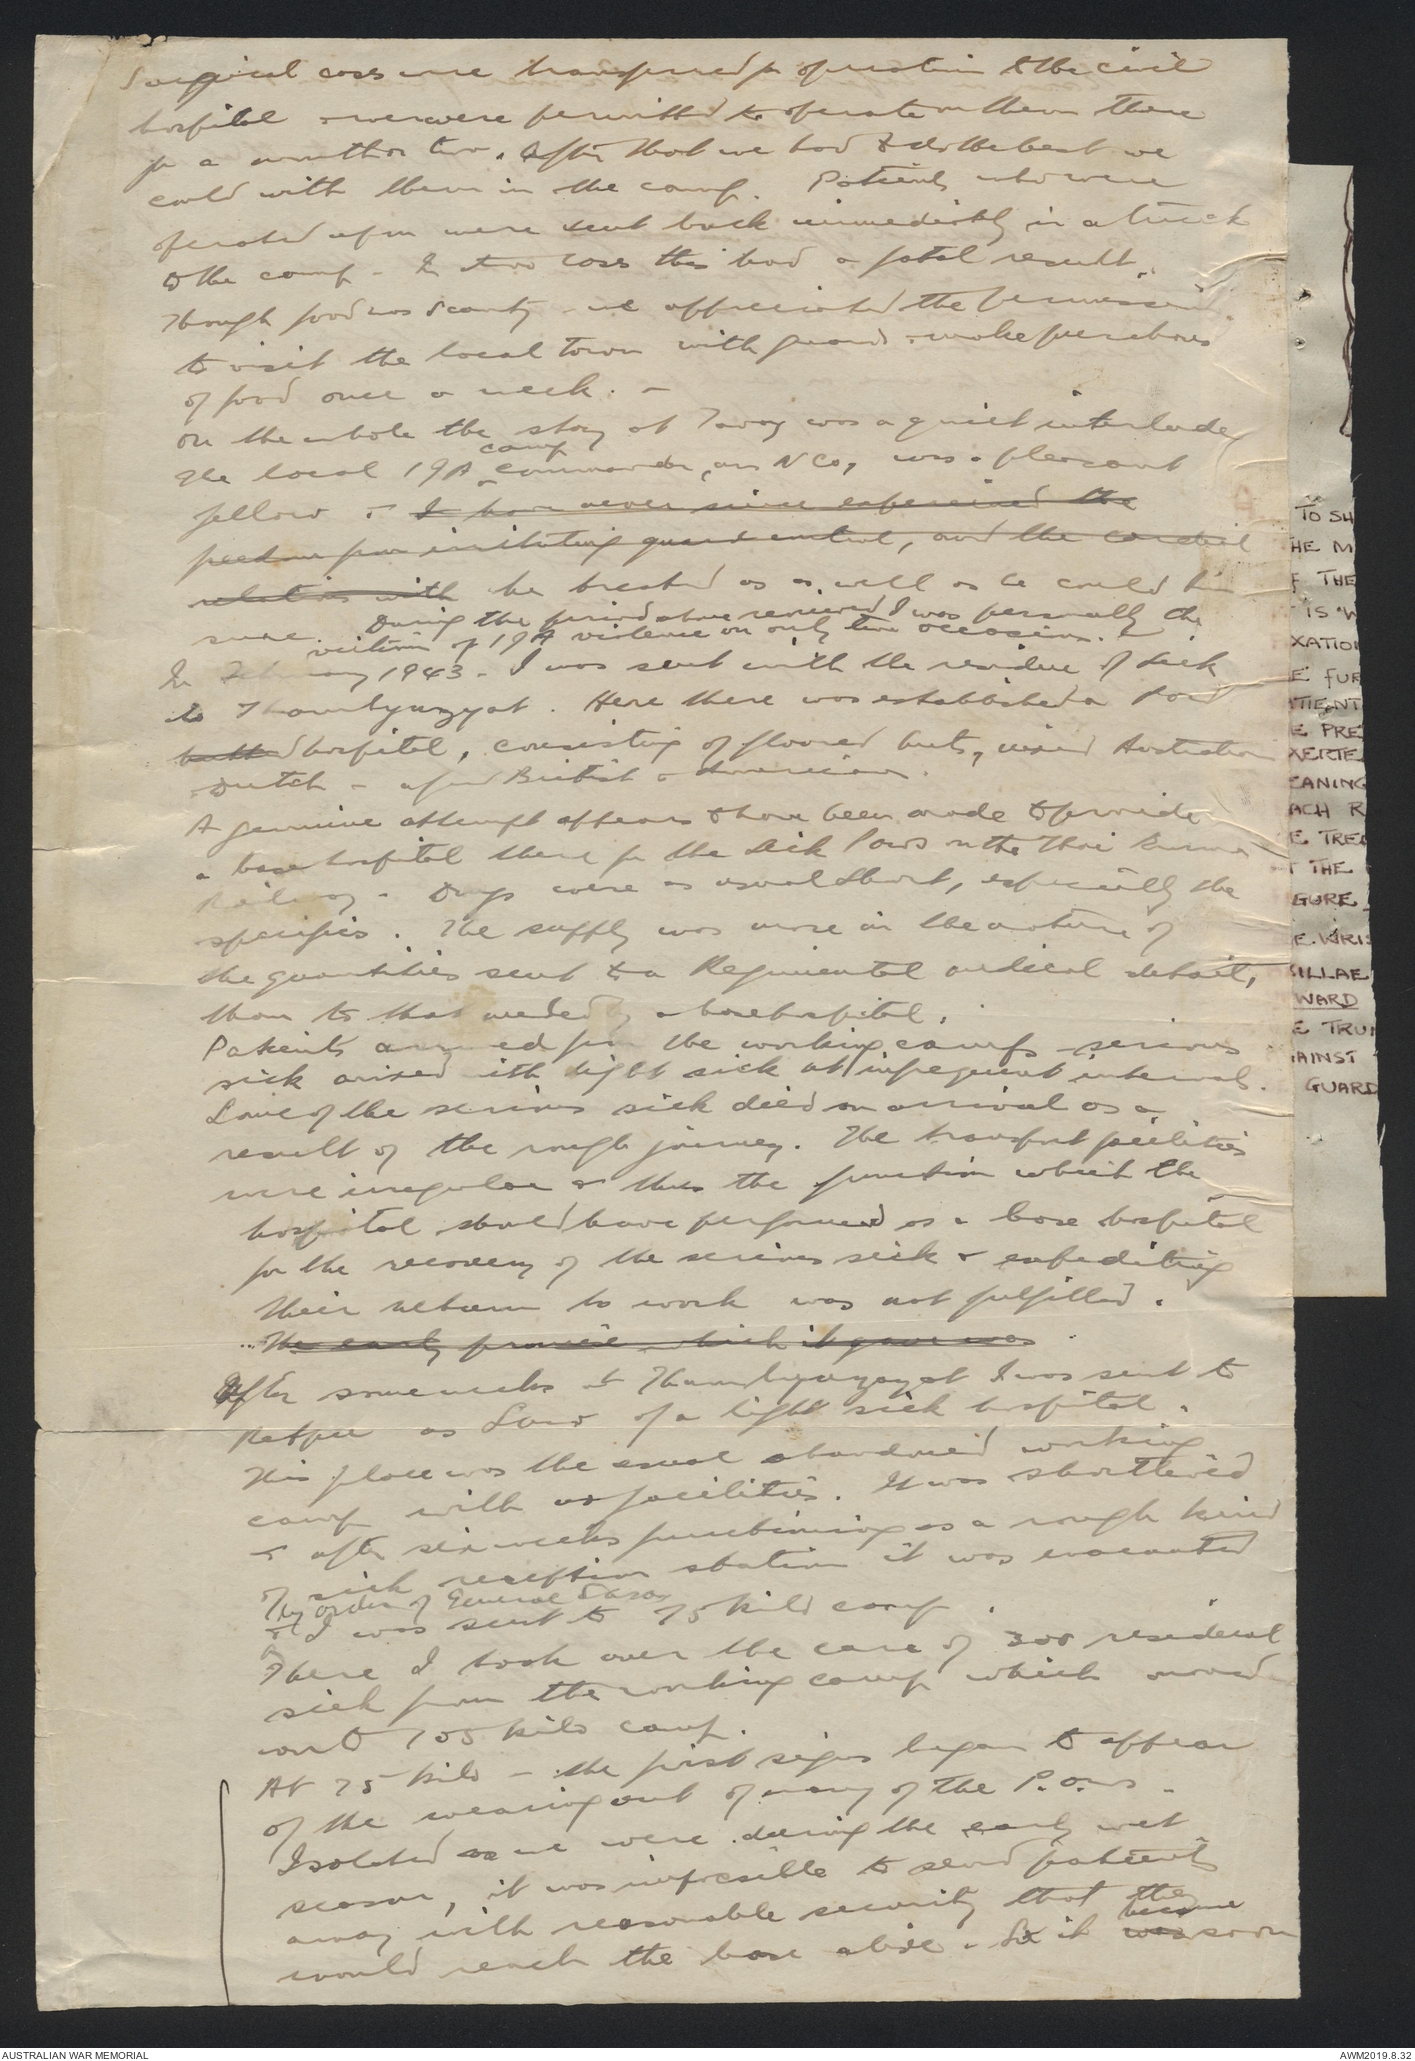 Surgical cases were transferred for operation to the civil
hospital & we were permitted to operate on them there
for a month or two. After that we had to do the best we
could with them in the camp. Patients who were
operated upon were sent back immediately in a truck
to the camp - In two cases this had a fatal result.
Though food was scanty we appreciated the permission
to visit the local town with guard & make purchases
of food once a week. -
On the whole the stay at Tavoy was a quiet interlude
camp
The local IJA commander, an NCO, was a pleasant
fellow & I have never since experienced the
freedom from irritating guard control, and the cordial
relations with he treated us as well as he could I'm
sure. During the period above reviewed I was personally the
victim of IJA violence on only two occasions.
In February 1943 - I was sent with the residue of sick
to Thanbyuzyat. Here there was established a POW
hutted hospital, consisting of floored huts, mixed Australian
Dutch - a few British & American.
A genuine attempt appears to have been made to provide
a base hospital there for the sick POWs on the Thai Burma
Railway - Drugs were as usual short, especially the
specifics. The supply was more in the nature of
the quantities sent to a Regimental medical detail,
than to that needed by a base hospital.
Patients arrived from the working camps - serious
sick mixed with light sick at infrequent intervals.
Some of the serious sick died on arrival as a
result of the rough journey. The transport facilities
were irregular & thus the function which the
hospital should have performed as a base hospital
for the recovery of the serious sick & expediting
their return to work was not fulfilled.
The early promise which it gave was
After some weeks at Thanbyuzayat I was sent to
Retpu as SMO of a light sick hospital.
This place was the usual abandoned working
camp with no facilities. It was shortlived
& after six weeks functioning as a rough kind
of sick reception station it was evacuated
by order of General Sasa
& I was sent to 75 kilo camp.
There I took over the care of 300 residual
sick from the working camp which moved
on to 105 kilo camp.
At 75 kilo - the first signs began to appear
of the wearing out of many of the P.O.Ws -
Isolated as we were during the early wet
season, it was impossible to send patients
away with reasonable security that they
would reach the base alive. So it was became soon
TO SH
HE M
F THE
IS W
XATIO
E FUR
ATIENT
E PRE
XERTE
EANING
ACH R
E TREA
T THE
GURE
E WRIS
SILLAE
WARD
E TRUN
GAINST
GUARD
AUSTRALIAN WAR MEMORIAL
AWM2019.8.32